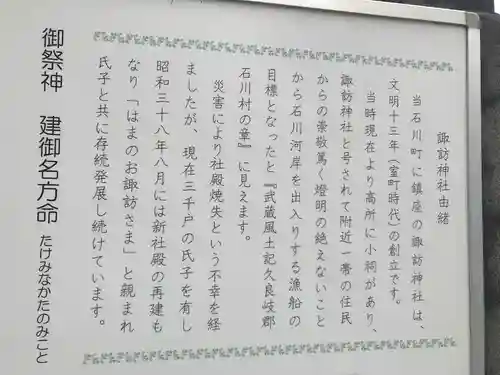 諏訪神社由緒
当石川町に鎮座の諏訪神社は、
文明十三年（室町時代）の創立です。
当時現在より高所に小祠があり、
諏訪神社と号されて附近一帯の住民
からの崇敬篤く燈明の絶えないこと
から石川河岸を出入りする漁船の
目標となったと『武蔵風土記久良岐郡
石川村の章』に見えます。
災害により社殿焼失という不幸を経
ましたが、現在三千戸の氏子を有し
昭和三十八年八月には新社殿の再建も
なり「はまのお諏訪さま」と親まれ
氏子と共に存続発展し続けています。
御祭神　建御名方命 たけみなかたのみこと